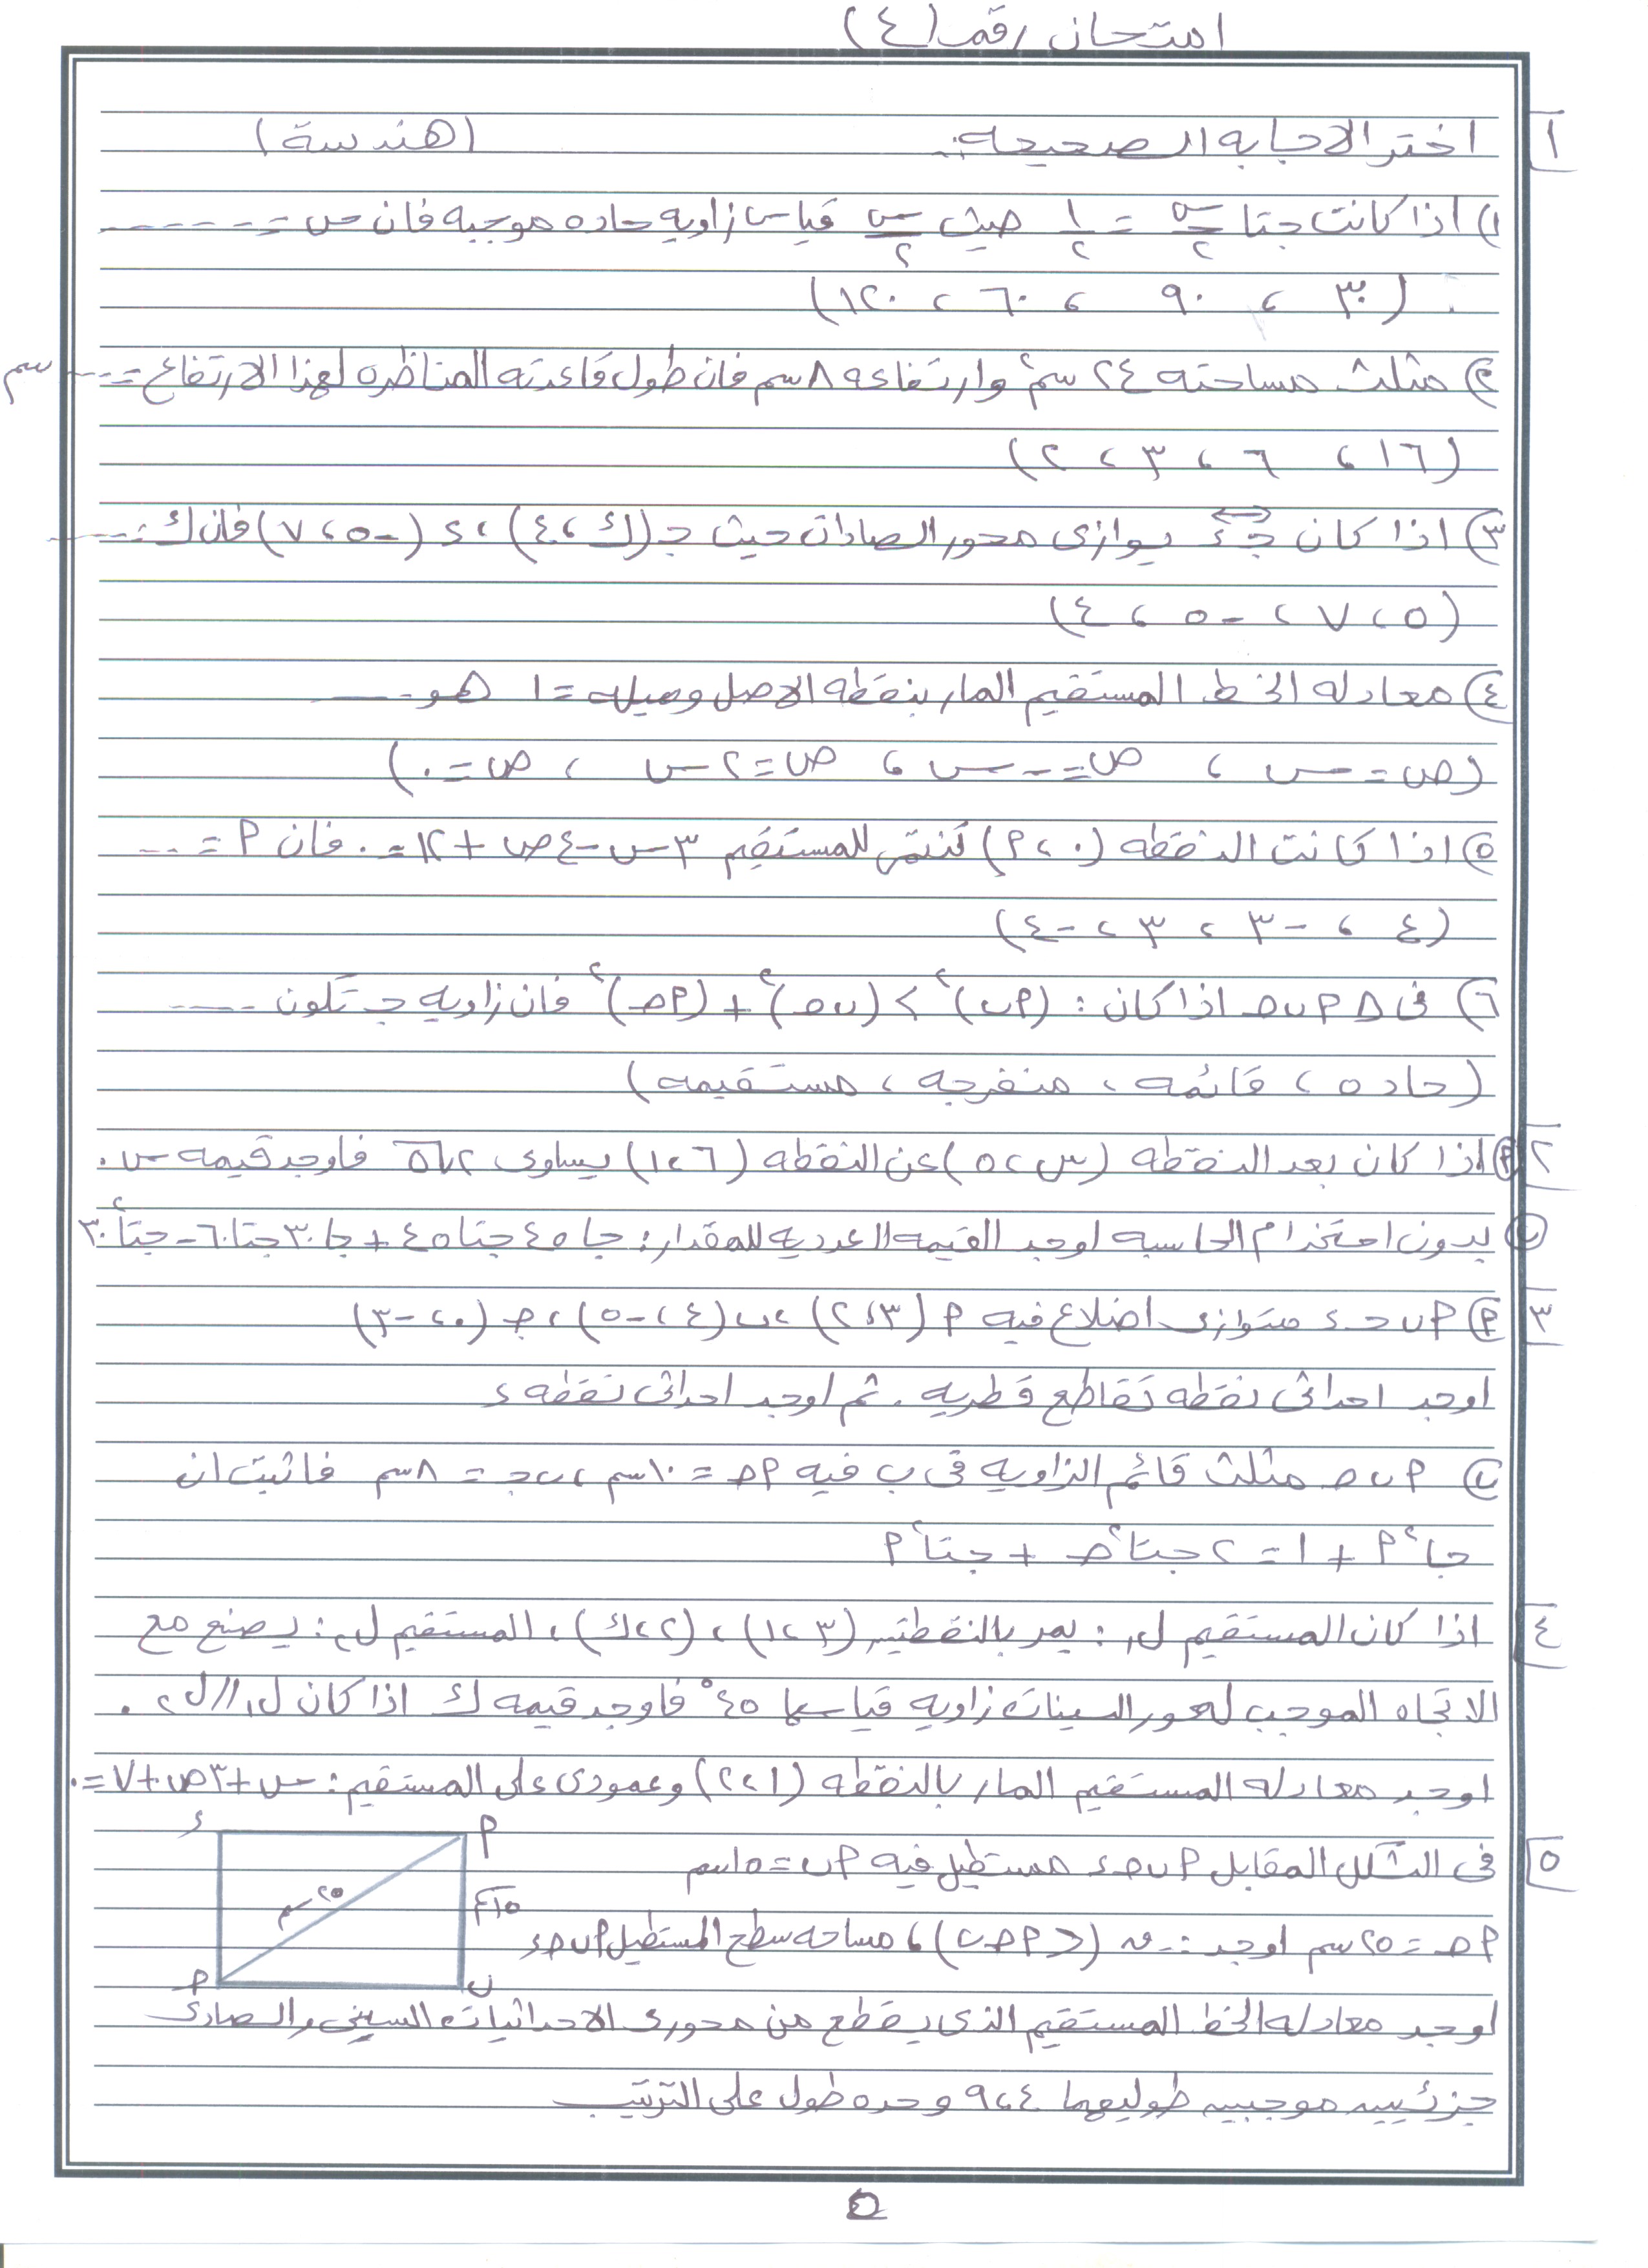 امتحان رقم (٤)
١ اختر الاجابه الصحيحه:.. (هندسة)
١) اذا كانت جتا س/٢ = ١/٢ حيث س/٢ قياس زاويه حاده موجبه فان س = ------
(٣٠ ، ٩٠ ، ٦٠ ، ١٢٠)
٢) مثلث مساحته ٢٤ سم٢ وارتفاعه ٨ سم فان طول قاعدته المناظره لهذا الارتفاع = ---- سم
(١٦ ، ٦ ، ٣ ، ٢)
٣) اذا كان جـ ء يوازى محور الصادات حيث جـ (ك ، ٤) ، ء (-٥ ، ٧) فان ك = ----
(٥ ، ٧ ، -٥ ، ٤)
٤) معادله الخط المستقيم المار بنقطه الاصل وميله = ١ هو ----
(ص = س ، ص = -س ، ص = ٢س ، ص = ٠)
٥) اذا كانت النقطه (٠ ، م) تنتمى للمستقيم ٣س - ٤ص + ١٢ = ٠ فان م = ---
(٤ ، -٣ ، ٣ ، -٤)
٦) فى Δ م ب حـ اذا كان : (م ب)٢ > (ب حـ)٢ + (م حـ)٢ فان زاويه جـ تكون ----
(حاده ، قائمه ، منفرجه ، مستقيمه)
٢ م) اذا كان بعد النقطه (س ، ٥) عن النقطه (٦ ، ١) يساوى ٢√٥ فاوجد قيمه س .
ب) بدون استخدام الحاسبه اوجد القيمه العدديه للمقدار: جا ٤٥ جتا ٤٥ + جا ٣٠ جتا ٦٠ - جتا٢ ٣٠
٣ م) م ب حـ ء متوازى اضلاع فيه م (٣ ، ٢) ، ب (٤ ، -٥) ، جـ (٠ ، -٣)
اوجد احداثى نقطه تقاطع قطريه . ثم اوجد احداثى نقطه ء
ب) م ب حـ مثلث قائم الزاويه فى ب فيه م حـ = ١٠ سم ، ب جـ = ٨ سم فاثبت ان
جا٢ م + ١ = ٢ جتا٢ حـ + جتا٢ م
٤ اذا كان المستقيم ل١ : يمر بالنقطتين (٣ ، ١) ، (٢ ، ك) ، المستقيم ل٢ : يصنع مع
الاتجاه الموجب لمحور السينات زاويه قياسها ٤٥° فاوجد قيمه ك اذا كان ل١ // ل٢ .
اوجد معادله المستقيم المار بالنقطه (١ ، ٢) وعمودى على المستقيم : س + ٣ص + ٧ = ٠
٥ فى الشكل المقابل م ب حـ ء مستطيل فيه م ب = ١٥ سم
م حـ = ٢٥ سم اوجد :- ن (> م حـ ب) ، مساحه سطح المستطيل م ب حـ ء
ء م
٢٥ سم ١٥ سم
جـ ب
اوجد معادله الخط المستقيم الذى يقطع من محورى الاحداثيات السينى والصادى
جزئيين موجبين طوليهما ٤ ، ٩ وحده طول على الترتيب
٥